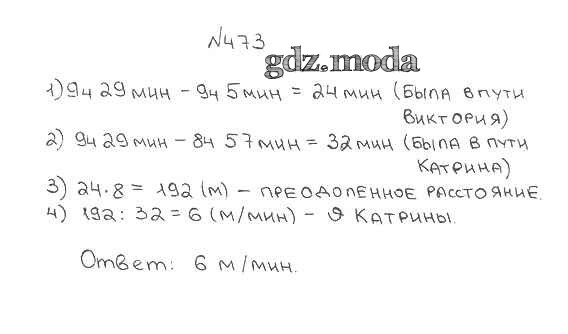 №473
gdz.moda
1) 9ч 29 мин - 9ч 5 мин = 24 мин (была в пути
Виктория)
2) 9ч 29 мин - 8ч 57 мин = 32 мин (была в пути
Катрина)
3) 24 · 8 = 192 (м) - преодоленное расстояние.
4) 192 : 32 = 6 (м/мин) - ϑ Катрины.
Ответ: 6 м/мин.